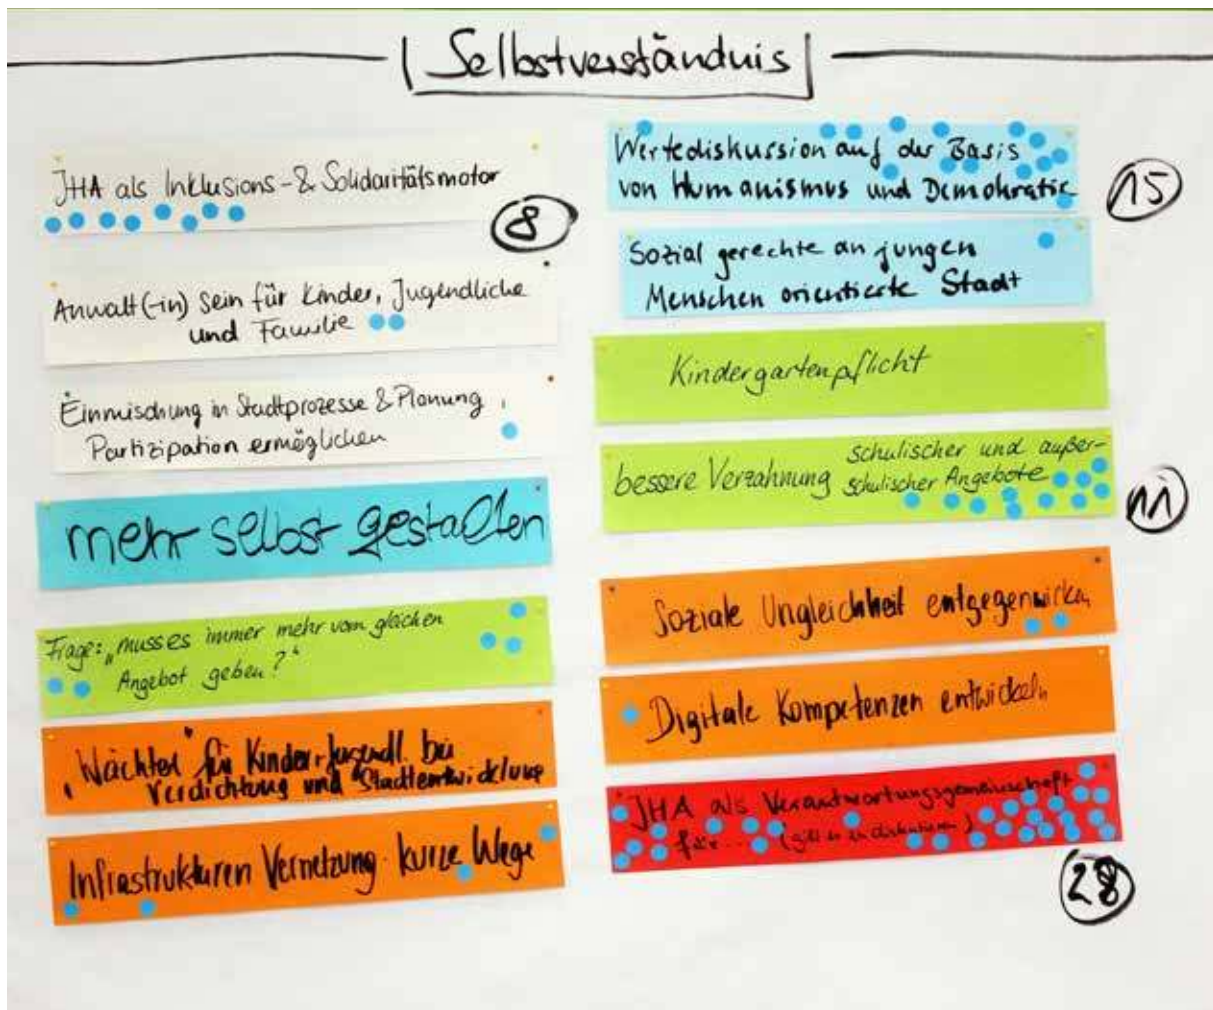 Selbstverständnis
JHA als Inklusions- & Solidaritätsmotor
8
Anwalt(-in) sein für Kinder, Jugendliche
und Familie
Einmischung in Stadtprozesse & Planung,
Partizipation ermöglichen
mehr selbst gestalten
Frage: „muss es immer mehr vom gleichen
Angebot geben?“
„Wächter“ für Kinder + Jugendl. bei
Verdichtung und Stadtentwicklung
Infrastrukturen Vernetzung. kurze Wege
Wertediskussion auf der Basis
von Humanismus und Demokratie
15
Sozial gerechte an jungen
Menschen orientierte Stadt
Kindergartenpflicht
bessere Verzahnung schulischer und außer-
schulischer Angebote
11
Soziale Ungleichheit entgegenwirken
Digitale Kompetenzen entwickeln
JHA als Verantwortungsgemeinschaft
für... (gilt es zu diskutieren)
28